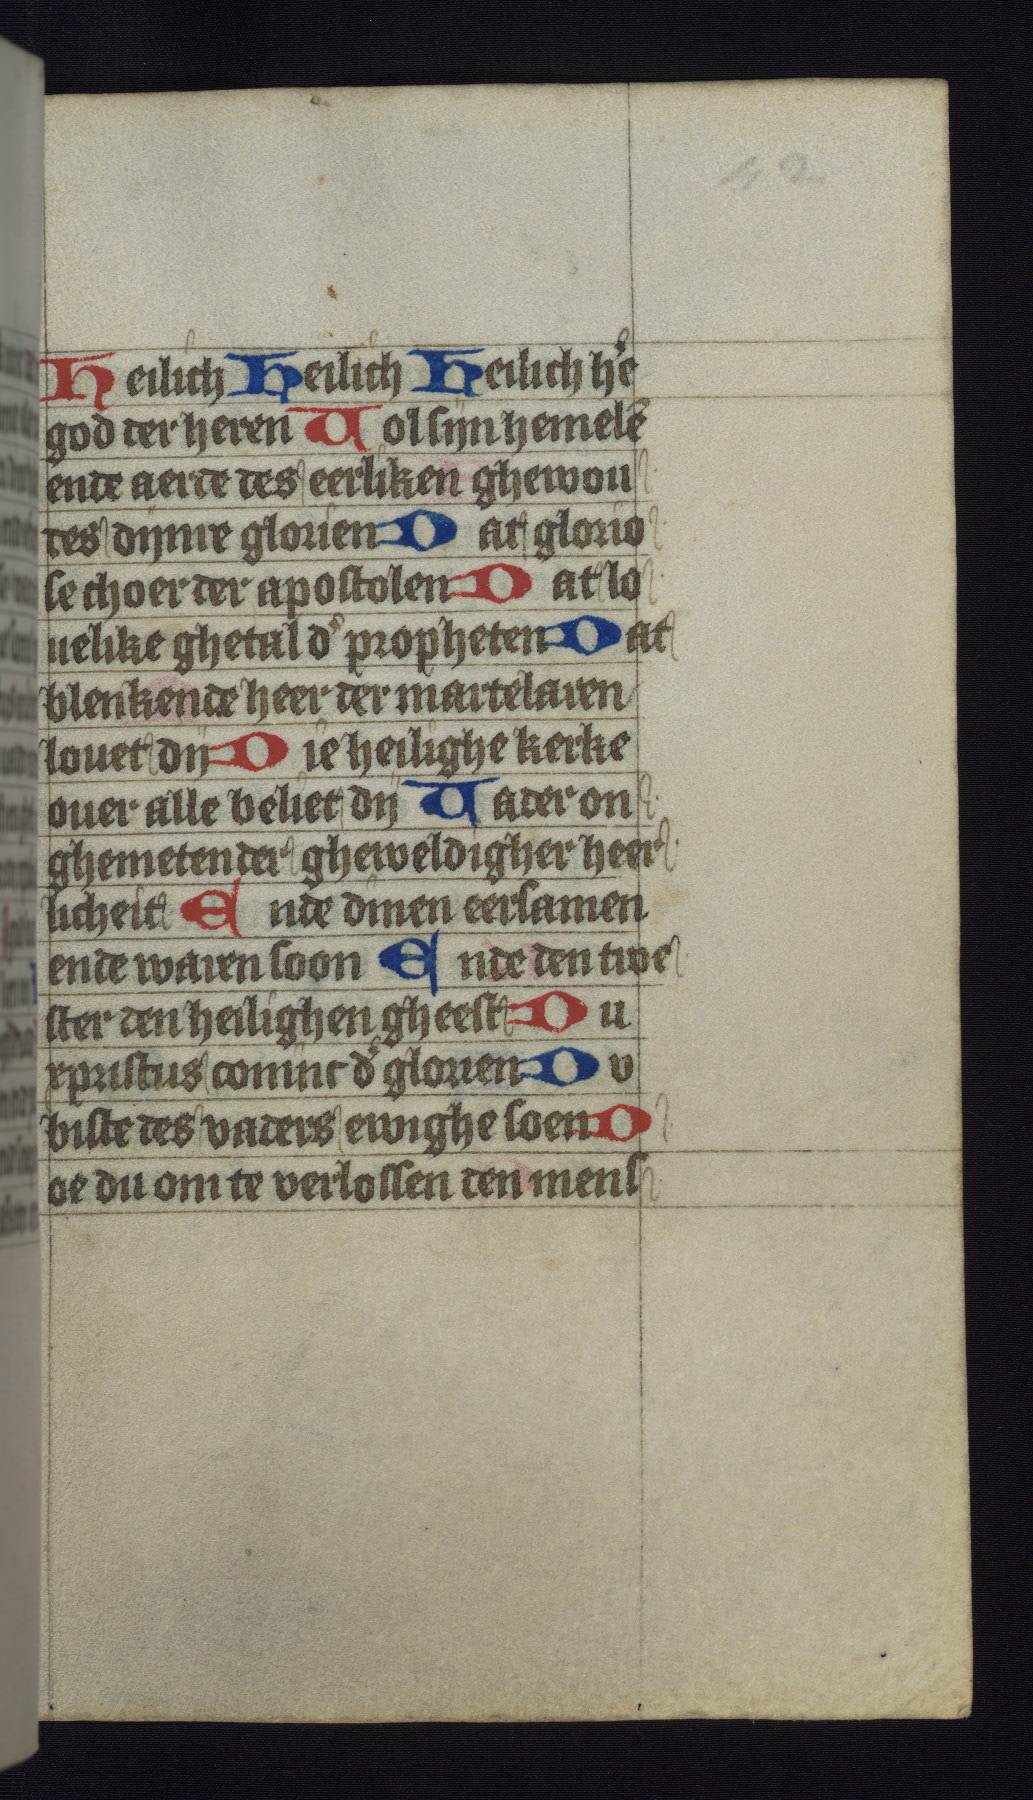 42
Heilich Heilich Heilich h'e
god der heren Vol sijn hemelē
ende aerde des eerliken ghewou
des dijnre glorien Dat glorio
se choer der apostolen Dat lo
uelike ghetal d' propheten Dat
blenkende heer der martelaren
louet dij Die heilighe kerke
ouer alle beliet dij Vader on
ghemetender gheweldigher heer
licheit Ende dinen eersamen
ende waren soon Ende den troe
ster den heilighen gheest Du
xpristus coninc d' glorien Dv
biste des vaders ewighe soen D
oe du om te verlossen den mensch